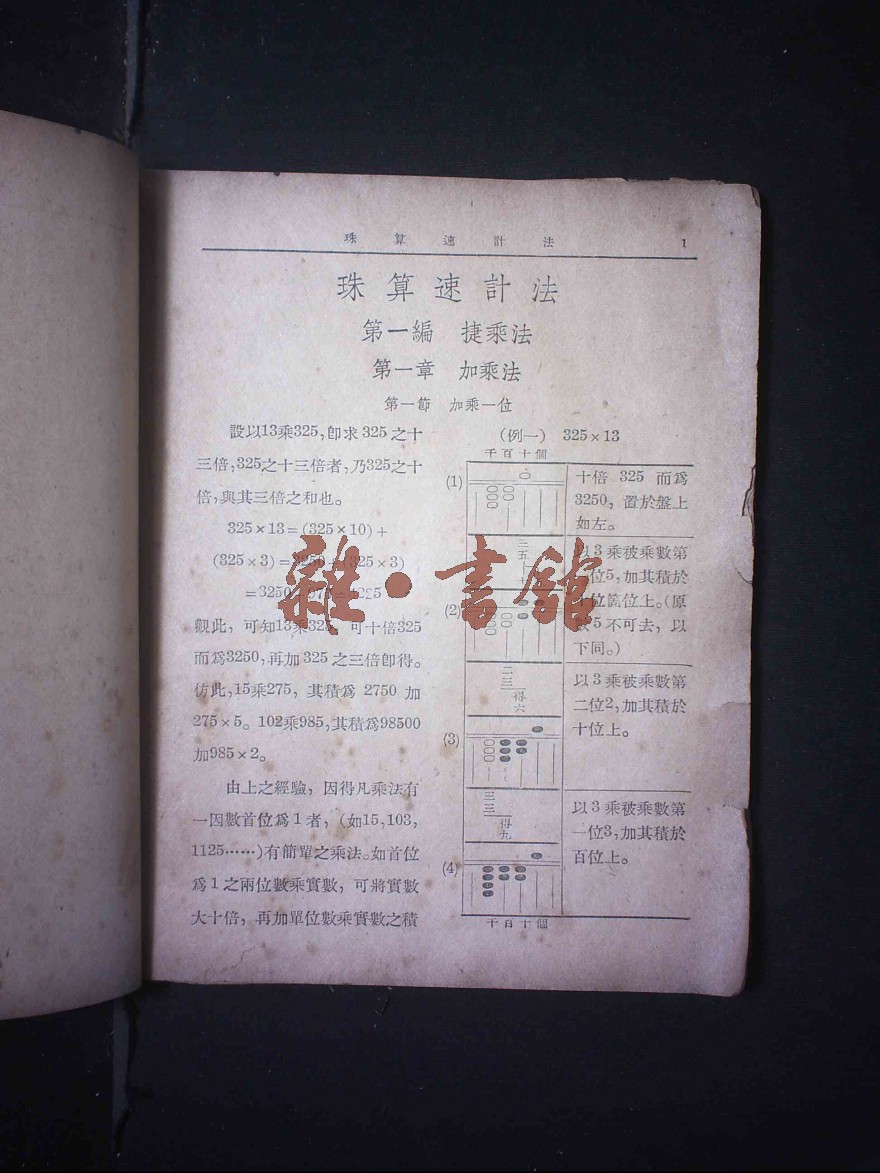 珠算速計法 1
珠算速計法
第一編 捷乘法
第一章 加乘法
第一節 加乘一位
設以13乘325,卽求 325 之十
三倍,325之十三倍者,乃325之十
倍,與其三倍之和也。
325×13=(325×10)+
(325×3)=3250+(325×3)
=3250
觀此,可知13乘325,可十倍325
而爲3250,再加 325 之三倍卽得。
仿此,15乘275,其積爲 2750 加
275×5。102乘985,其積爲98500
加985×2。
由上之經驗,因得凡乘法有
一因數首位爲1者,(如15,103,
1125……)有簡單之乘法。如首位
爲1之兩位數乘實數,可將實數
大十倍,再加單位數乘實數之積
(例一) 325×13
千百十個
(1)
十倍 325 而爲
3250,置於盤上
如左。
三五
(2)
以3乘被乘數第
位5,加其積於
位箇位上。(原
5不可去,以
下同。)
二三得六
(3)
以3乘被乘數第
二位2,加其積於
十位上。
三三得九
(4)
以3乘被乘數第
一位3,加其積於
百位上。
千百十個
雜·書館